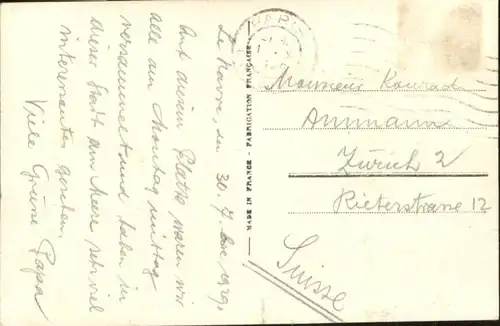 Le Havre, den 30. 7. 1929.
Auf diesem Platze waren wir
alle am Montag mittag
versammelt und haben in
dieser Stadt am Meere sehr viel
interessantes
Viele Grüsse Papa
MADE IN FRANCE - FABRICATION FRANÇAISE
PARIS
Monsieur Konrad
Ammann
Zürich 2
Rieterstrasse 12
Suisse